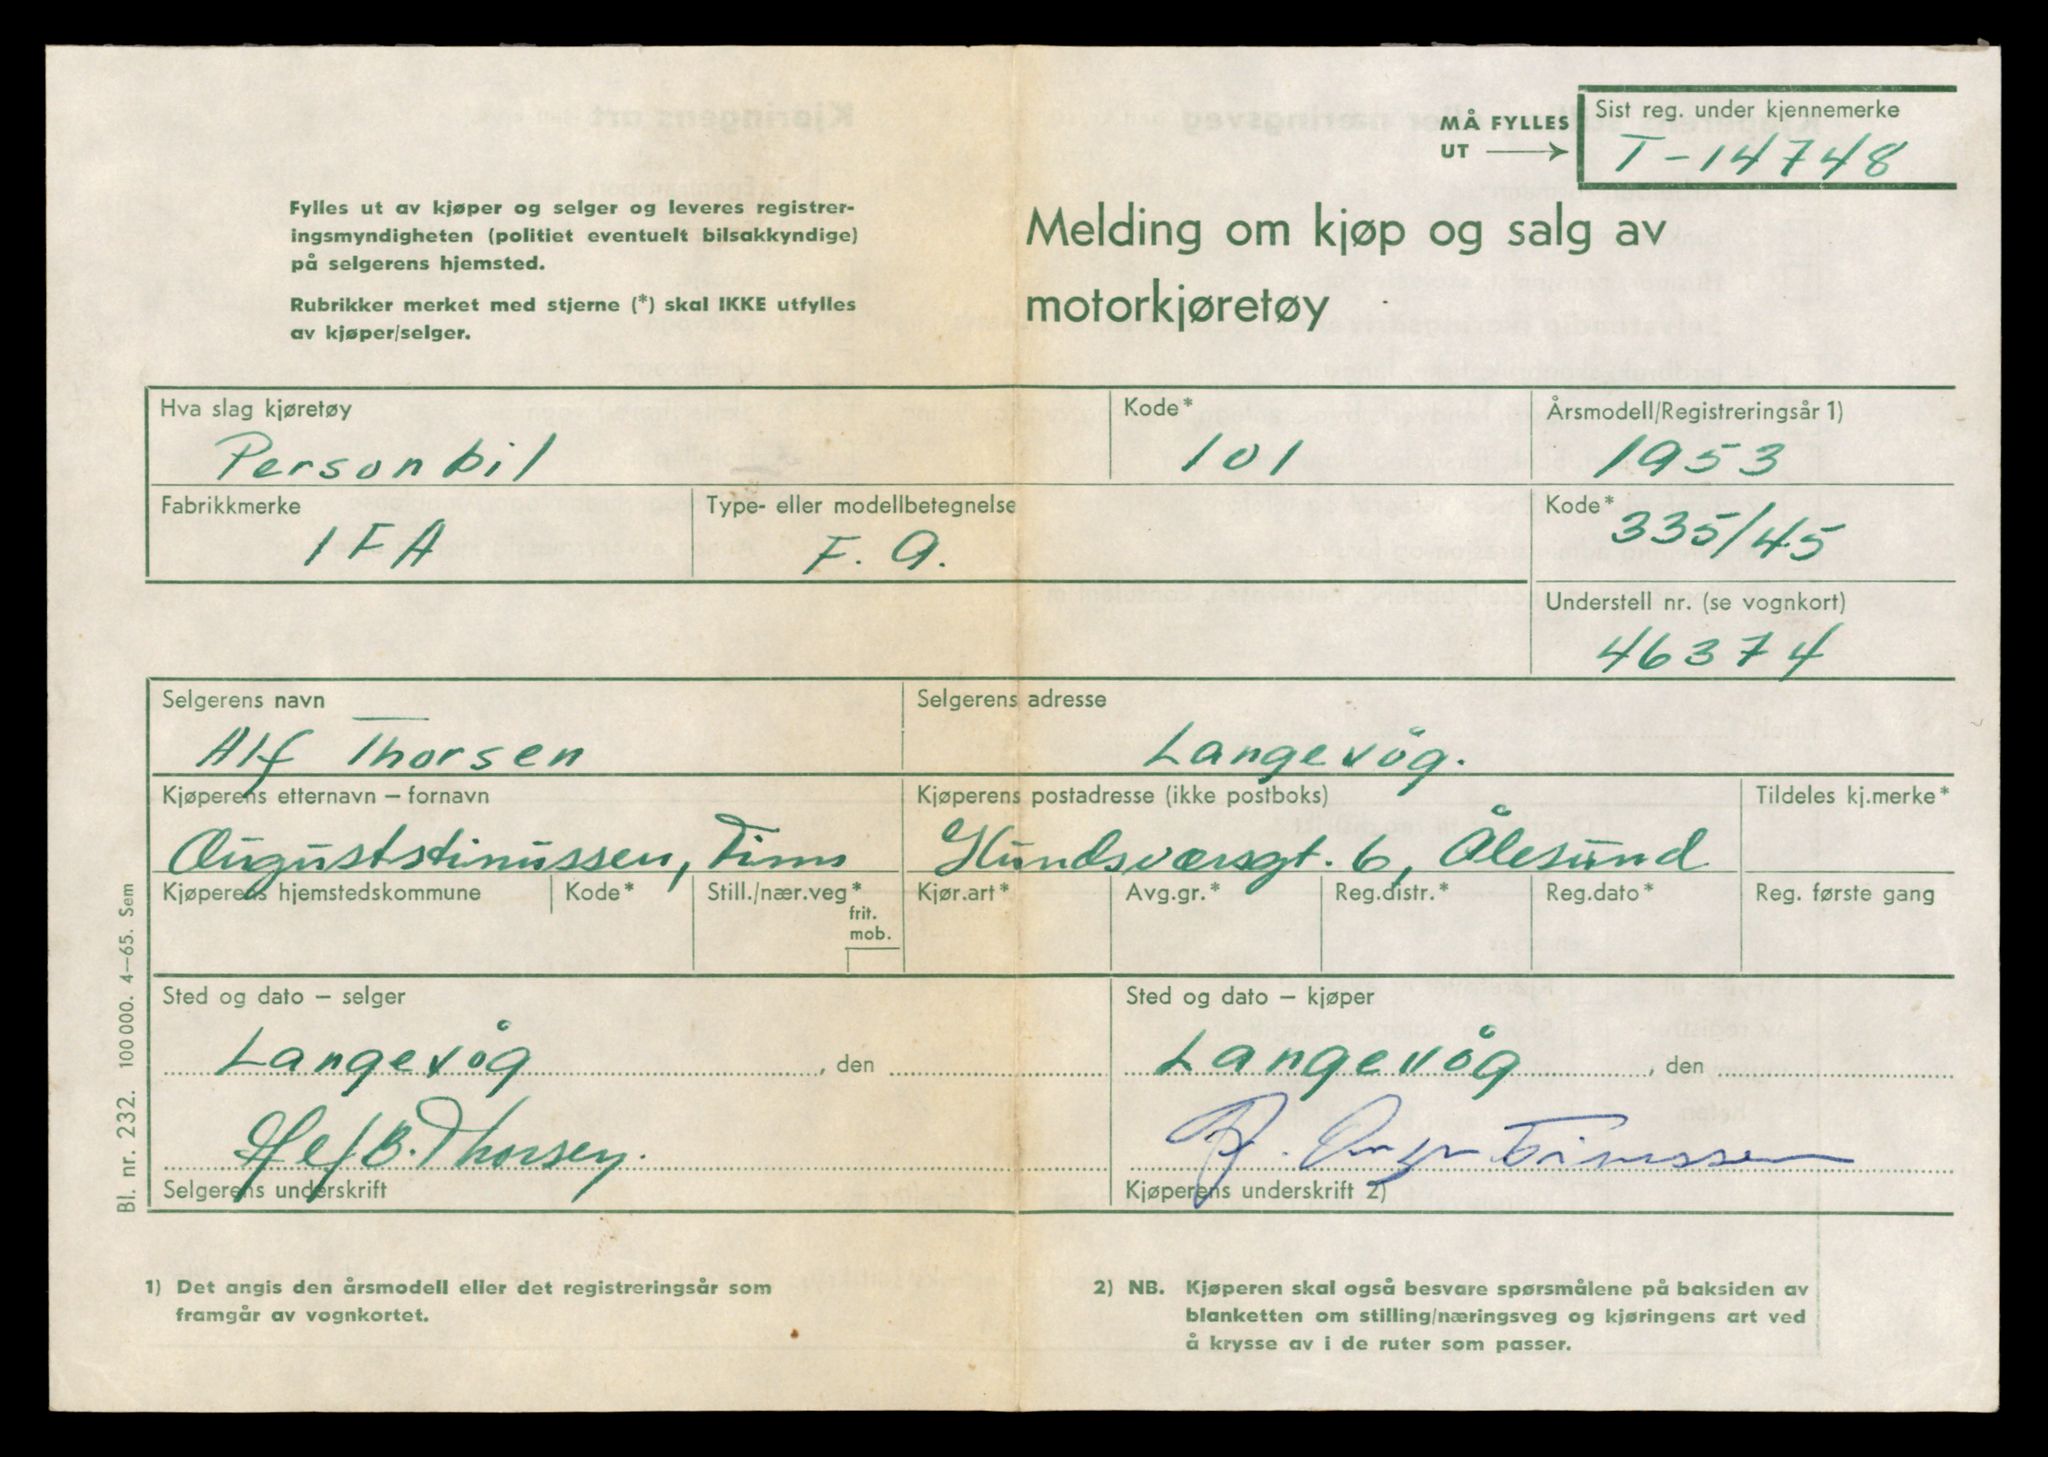 MÅ FYLLES
UT
Sist reg. under kjennemerke
T-14748
Fylles ut av kjøper og selger og leveres registrer-
ingsmyndigheten (politiet eventuelt bilsakkyndige)
på selgerens hjemsted.
Rubrikker merket med stjerne (*) skal IKKE utfylles
av kjøper/selger.
Melding om kjøp og salg av
motorkjøretøy
Hva slag kjøretøy
Personbil
Kode*
101
Årsmodell/Registreringsår 1)
1953
Fabrikkmerke
IFA
Type- eller modellbetegnelse
F. 9.
Kode*
335/45
Understell nr. (se vognkort)
46374
Selgerens navn
Alf Thorsen
Selgerens adresse
Langevåg.
Kjøperens etternavn – fornavn
Auguststinussen,
Kjøperens postadresse (ikke postboks)
Hundsværsgt. 6, Ålesund
Tildeles kj.merke*
Kjøperens hjemstedskommune
Kode*
Still./nær.veg*
frit.
mob.
Kjør.art*
Avg.gr.*
Reg.distr.*
Reg.dato*
Reg. første gang
Sted og dato – selger
Langevåg, den
Alf B. Thorsen.
Selgerens underskrift
Sted og dato – kjøper
Langevåg, den
Kjøperens underskrift 2)
Bl. nr. 232. 100 000. 4–65. Sem
1) Det angis den årsmodell eller det registreringsår som
framgår av vognkortet.
2) NB. Kjøperen skal også besvare spørsmålene på baksiden av
blanketten om stilling/næringsveg og kjøringens art ved
å krysse av i de ruter som passer.